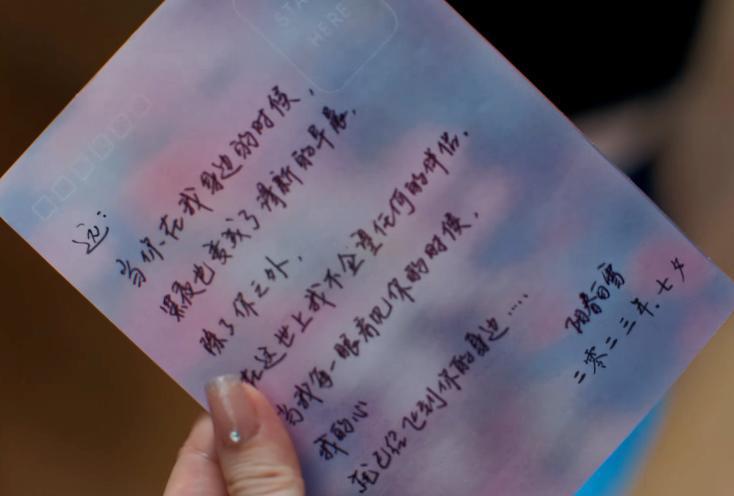 STA
HERE
远:
当你在我身边的时候,
黑夜也变成了清新的早晨.
除了你之外,
在这世上我不企望任何的伴侣.
当我每一眼看见你的时候,
我的心
就已经飞到你的身边……
阳春白雪
二零二三年.七夕